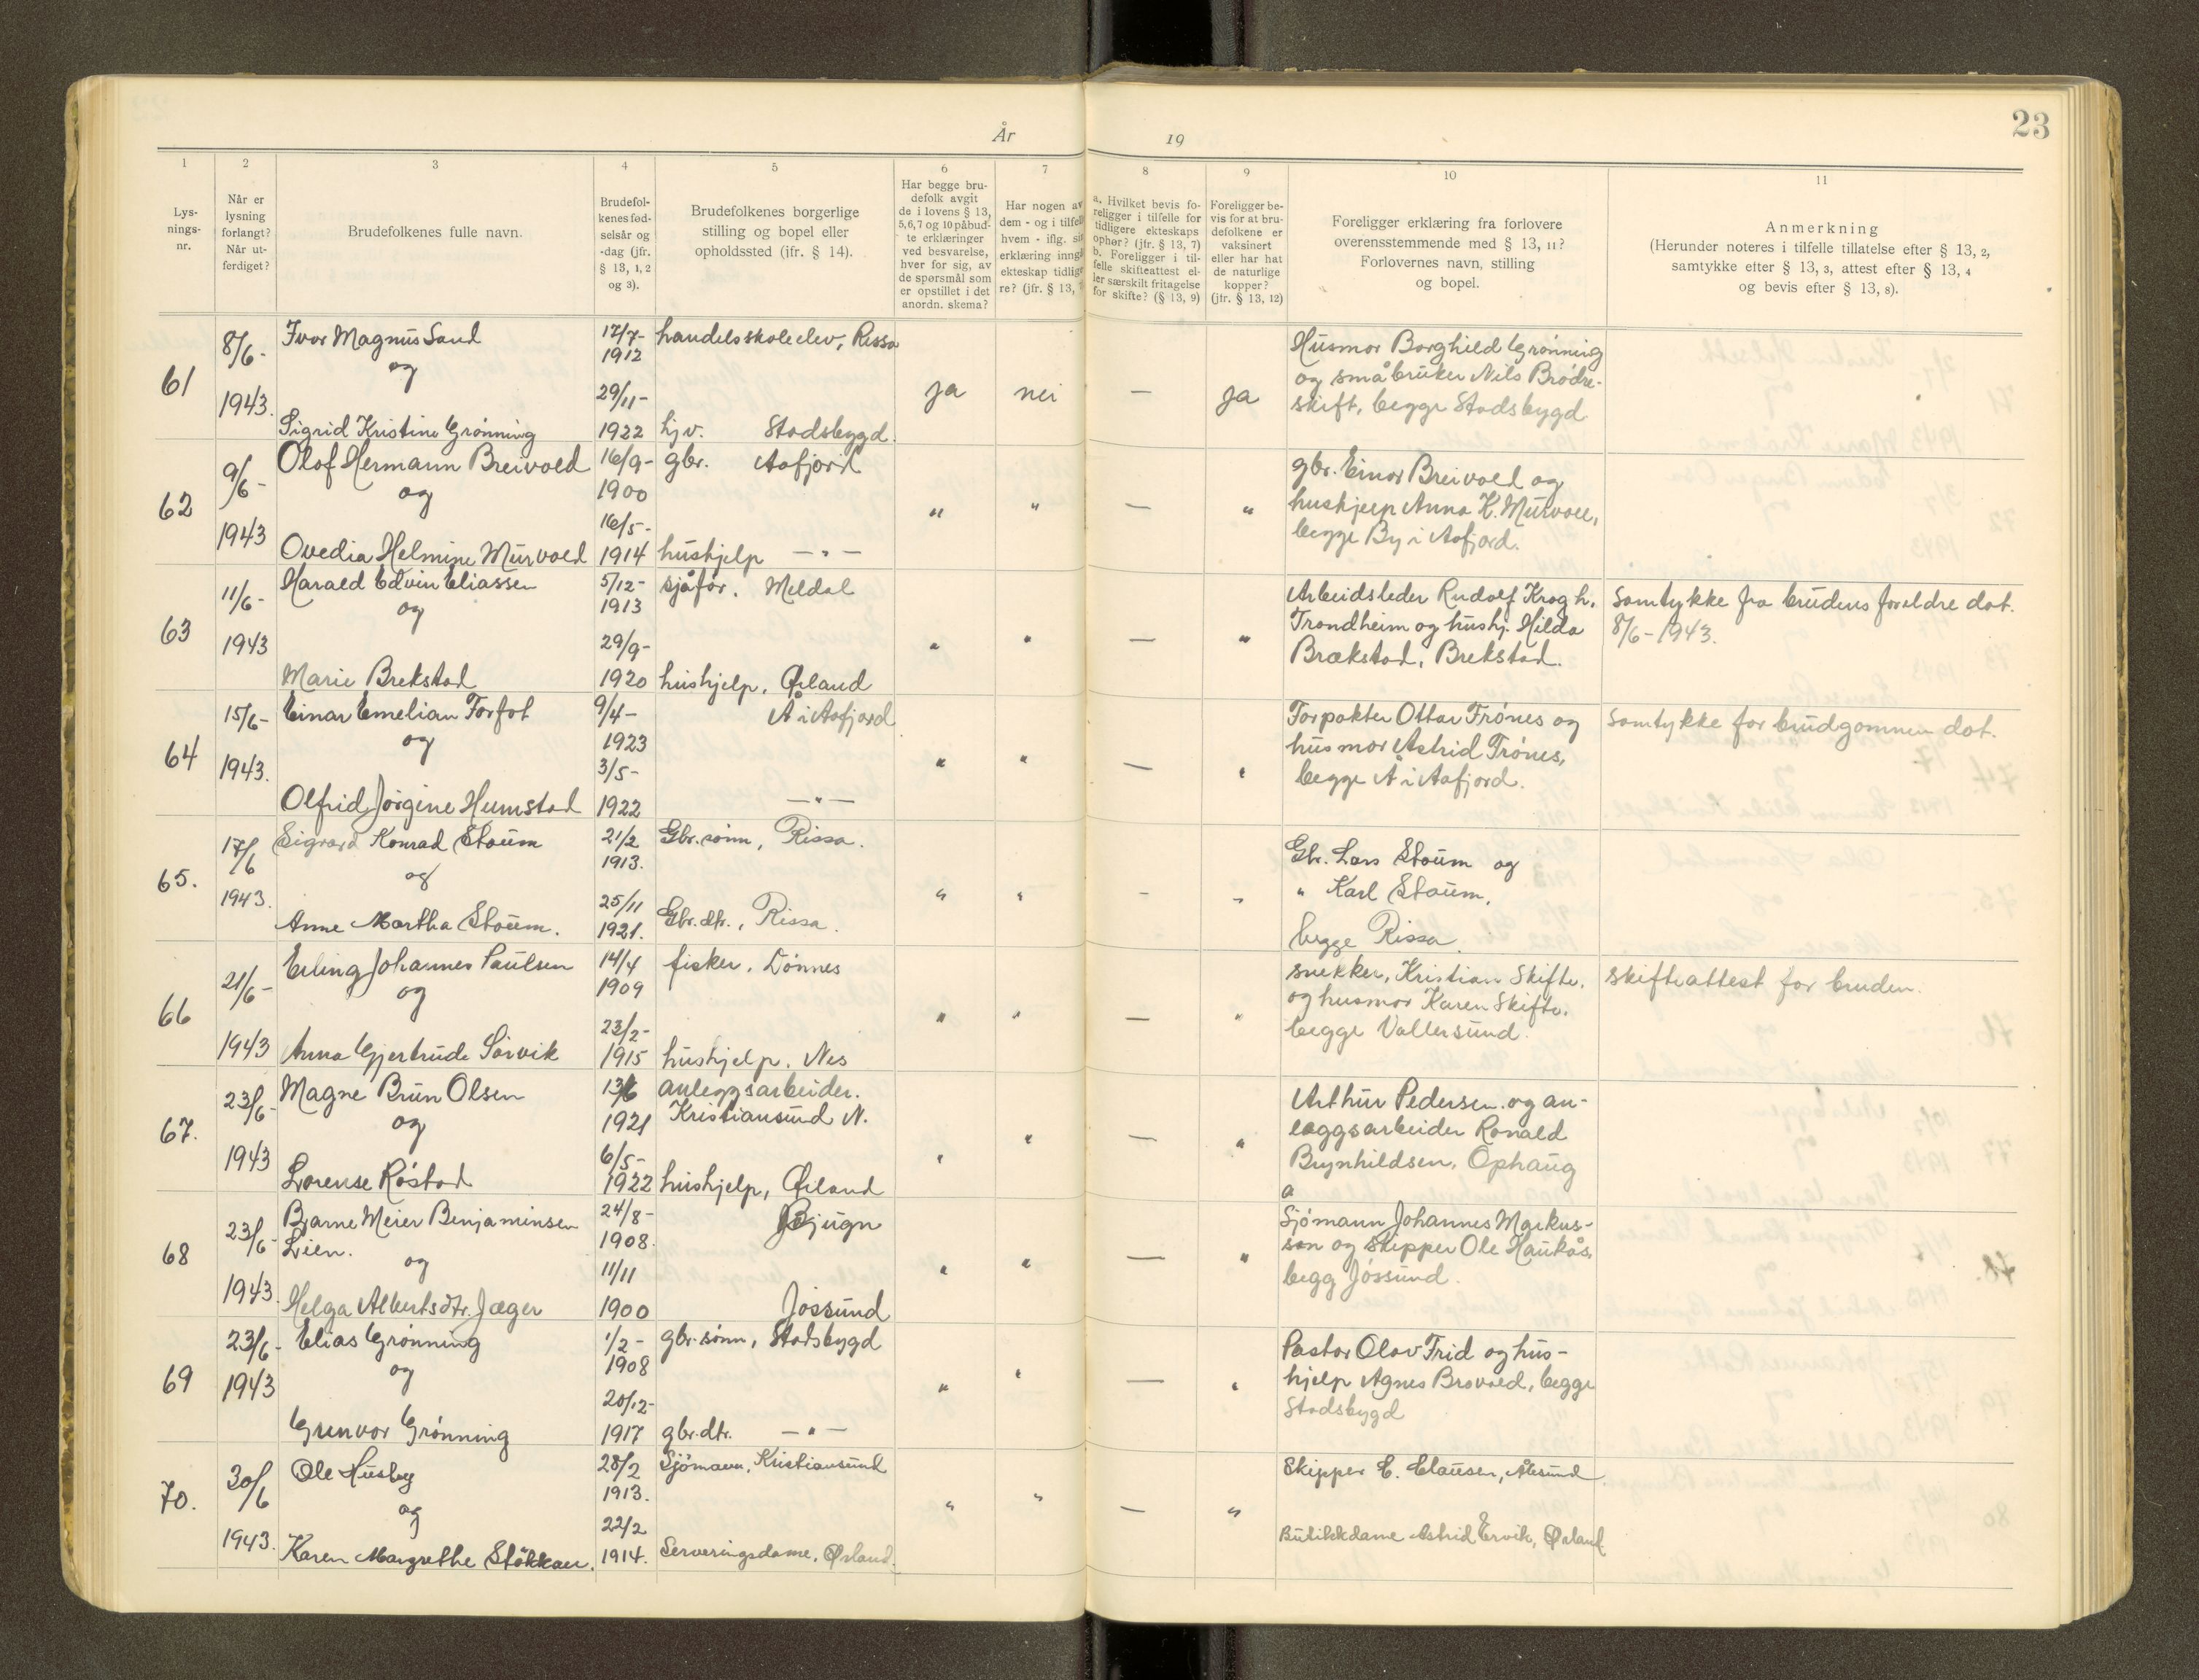 23
År 19
1
Lys-
nings-
nr.
2
Når er
lysning
forlangt?
Når ut-
ferdiget?
3
Brudefolkenes fulle navn.
4
Brudefol-
kenes fød-
selsår og
-dag (jfr.
§ 13, 1, 2
og 3).
5
Brudefolkenes borgerlige
stilling og bopel eller
opholdssted (jfr. § 14).
6
Har begge bru-
defolk avgit
de i lovens § 13,
5,6,7 og 10 påbud-
te erklæringer
ved besvarelse,
hver for sig, av
de spørsmål som
er opstillet i det
anordn. skema?
7
Har nogen av
dem - og i tilfelle
hvem - iflg. sin
erklæring inngå
ekteskap tidlige
re? (jfr. § 13,
8
a. Hvilket bevis fo-
religger i tilfelle for
tidligere ekteskaps
ophør? (jfr. § 13, 7)
b. Foreligger i til-
felle skifteattest el-
ler særskilt fritagelse
for skifte? (§ 13, 9)
9
Foreligger be-
vis for at bru-
defolkene er
vaksinert
eller har hat
de naturlige
kopper?
(jfr. § 13, 12)
10
Foreligger erklæring fra forlovere
overensstemmende med § 13, 11?
Forlovernes navn, stilling
og bopel.
11
Anmerkning
(Herunder noteres i tilfelle tillatelse efter § 13, 2,
samtykke efter § 13, 3, attest efter § 13, 4
og bevis efter § 13, 8).
61
8/6-
1943.
Ivar Magnus Sand
og
Sigrid Kristine Grønning
17/7-
1912
29/11-
1922
handelsskoleelev, Rissa
hjv. Stadsbygd.
ja
nei
—
ja
Husmor Borghild Grønning
og småbruker Nils Brødre-
skift, begge Stadsbygd
62
9/6-
1943
Olaf Hermann Breivold
og
Ovedia Helmine Murvold
16/9-
1900
16/5-
1914
gbr. Aafjord
hushjelp —"—
"
"
—
"
gbr. Einar Breivold og
huskjelp Anna K. Murvold,
begge By i Aafjord.
63
11/6-
1943
Harald Edvin Eliassen
og
Marie Brekstad
5/12-
1913
29/9-
1920
sjåfør. Meldal
hushjelp, Ørland
"
"
—
"
Arbeidsleder Rudolf Krogh,
Trondheim og hushj. Hilda
Brækstad, Brekstad.
Samtykke fra brudens foreldre dat.
8/6-1943.
64
15/6-
1943.
Einar Emelian Forfot
og
Olfrid Jørgine Humstad
9/4-
1923
3/5-
1922
Å i Aafjord
—"—
"
"
—
"
Forpakter Ottar Trønes og
husmor Astrid Trønes,
begge Å i Aafjord.
Samtykke for brudgommen dat.
65.
17/6
1943.
Sigvard Konrad Stoum
og
Anne Martha Stoum.
21/2
1913.
25/11
1921.
Gbr.sønn, Rissa.
Gbr.dtr., Rissa.
"
"
-
"
Gbr. Lars Stoum og
" Karl Stoum,
begge Rissa.
66
21/6-
1943
Erling Johannes Paulsen
og
Anna Gjertrude Sørvik
14/4
1909
23/2-
1915
fisker. Dønnes
hushjelp. Nes
"
"
—
"
snekker, Kristian Skifte.
og husmor Karen Skifte.
begge Vallersund.
skifteattest for bruden.
67.
23/6-
1943
Magne Brun Olsen
og
Lorense Røstad
13/6
1921
6/5-
1922
anleggsarbeider.
Kristiansund N.
hushjelp, Ørland
"
"
—
"
Arthur Pedersen og an-
læggsarbeider Ronald
Brynhildsen, Ophaug
a
68
23/6-
1943.
Bjarne Meier Benjaminsen
Lien.
og
Helga Albertsdtr. Jæger
24/8-
1908.
11/11
1900
Bjugn
Jøssund
"
"
—
"
Sjømann Johannes Markus-
sen og skipper Ole Haukås,
begg Jøssund.
69
23/6-
1943
Elias Grønning
og
Gunvor Grønning
1/2-
1908
20/12-
1917
gbr.sønn, Stadsbygd
gbr.dtr. —"—
"
"
—
"
Pastor Olav Frid og hus-
hjelp Agnes Brovold, begge
Stadsbygd
70.
30/6
1943.
Ole Husby
og
Karen Margrethe Støkkan.
28/2
1913.
22/2
1914.
Sjømann, Kristiansund
Serveringsdame, Ørland.
"
"
—
"
Skipper E. Clausen, Ålesund
Butikkdame Astrid Ervik, Ørland.